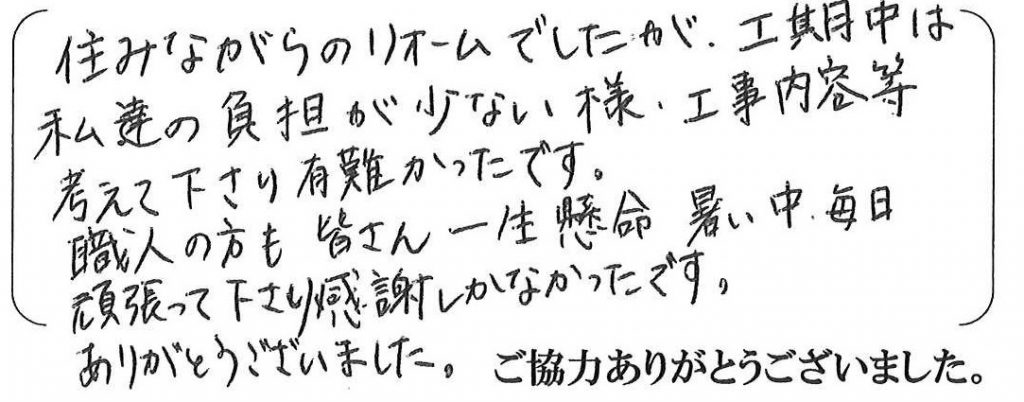 住みながらのリォームでしたが、工期中は
私達の負担が少ない様、工事内容等
考えて下さり有難かったです。
職人の方も皆さん一生懸命 暑い中、毎日
頑張って下さり感謝しかなかったです。
ありがとうございました。 ご協力ありがとうございました。